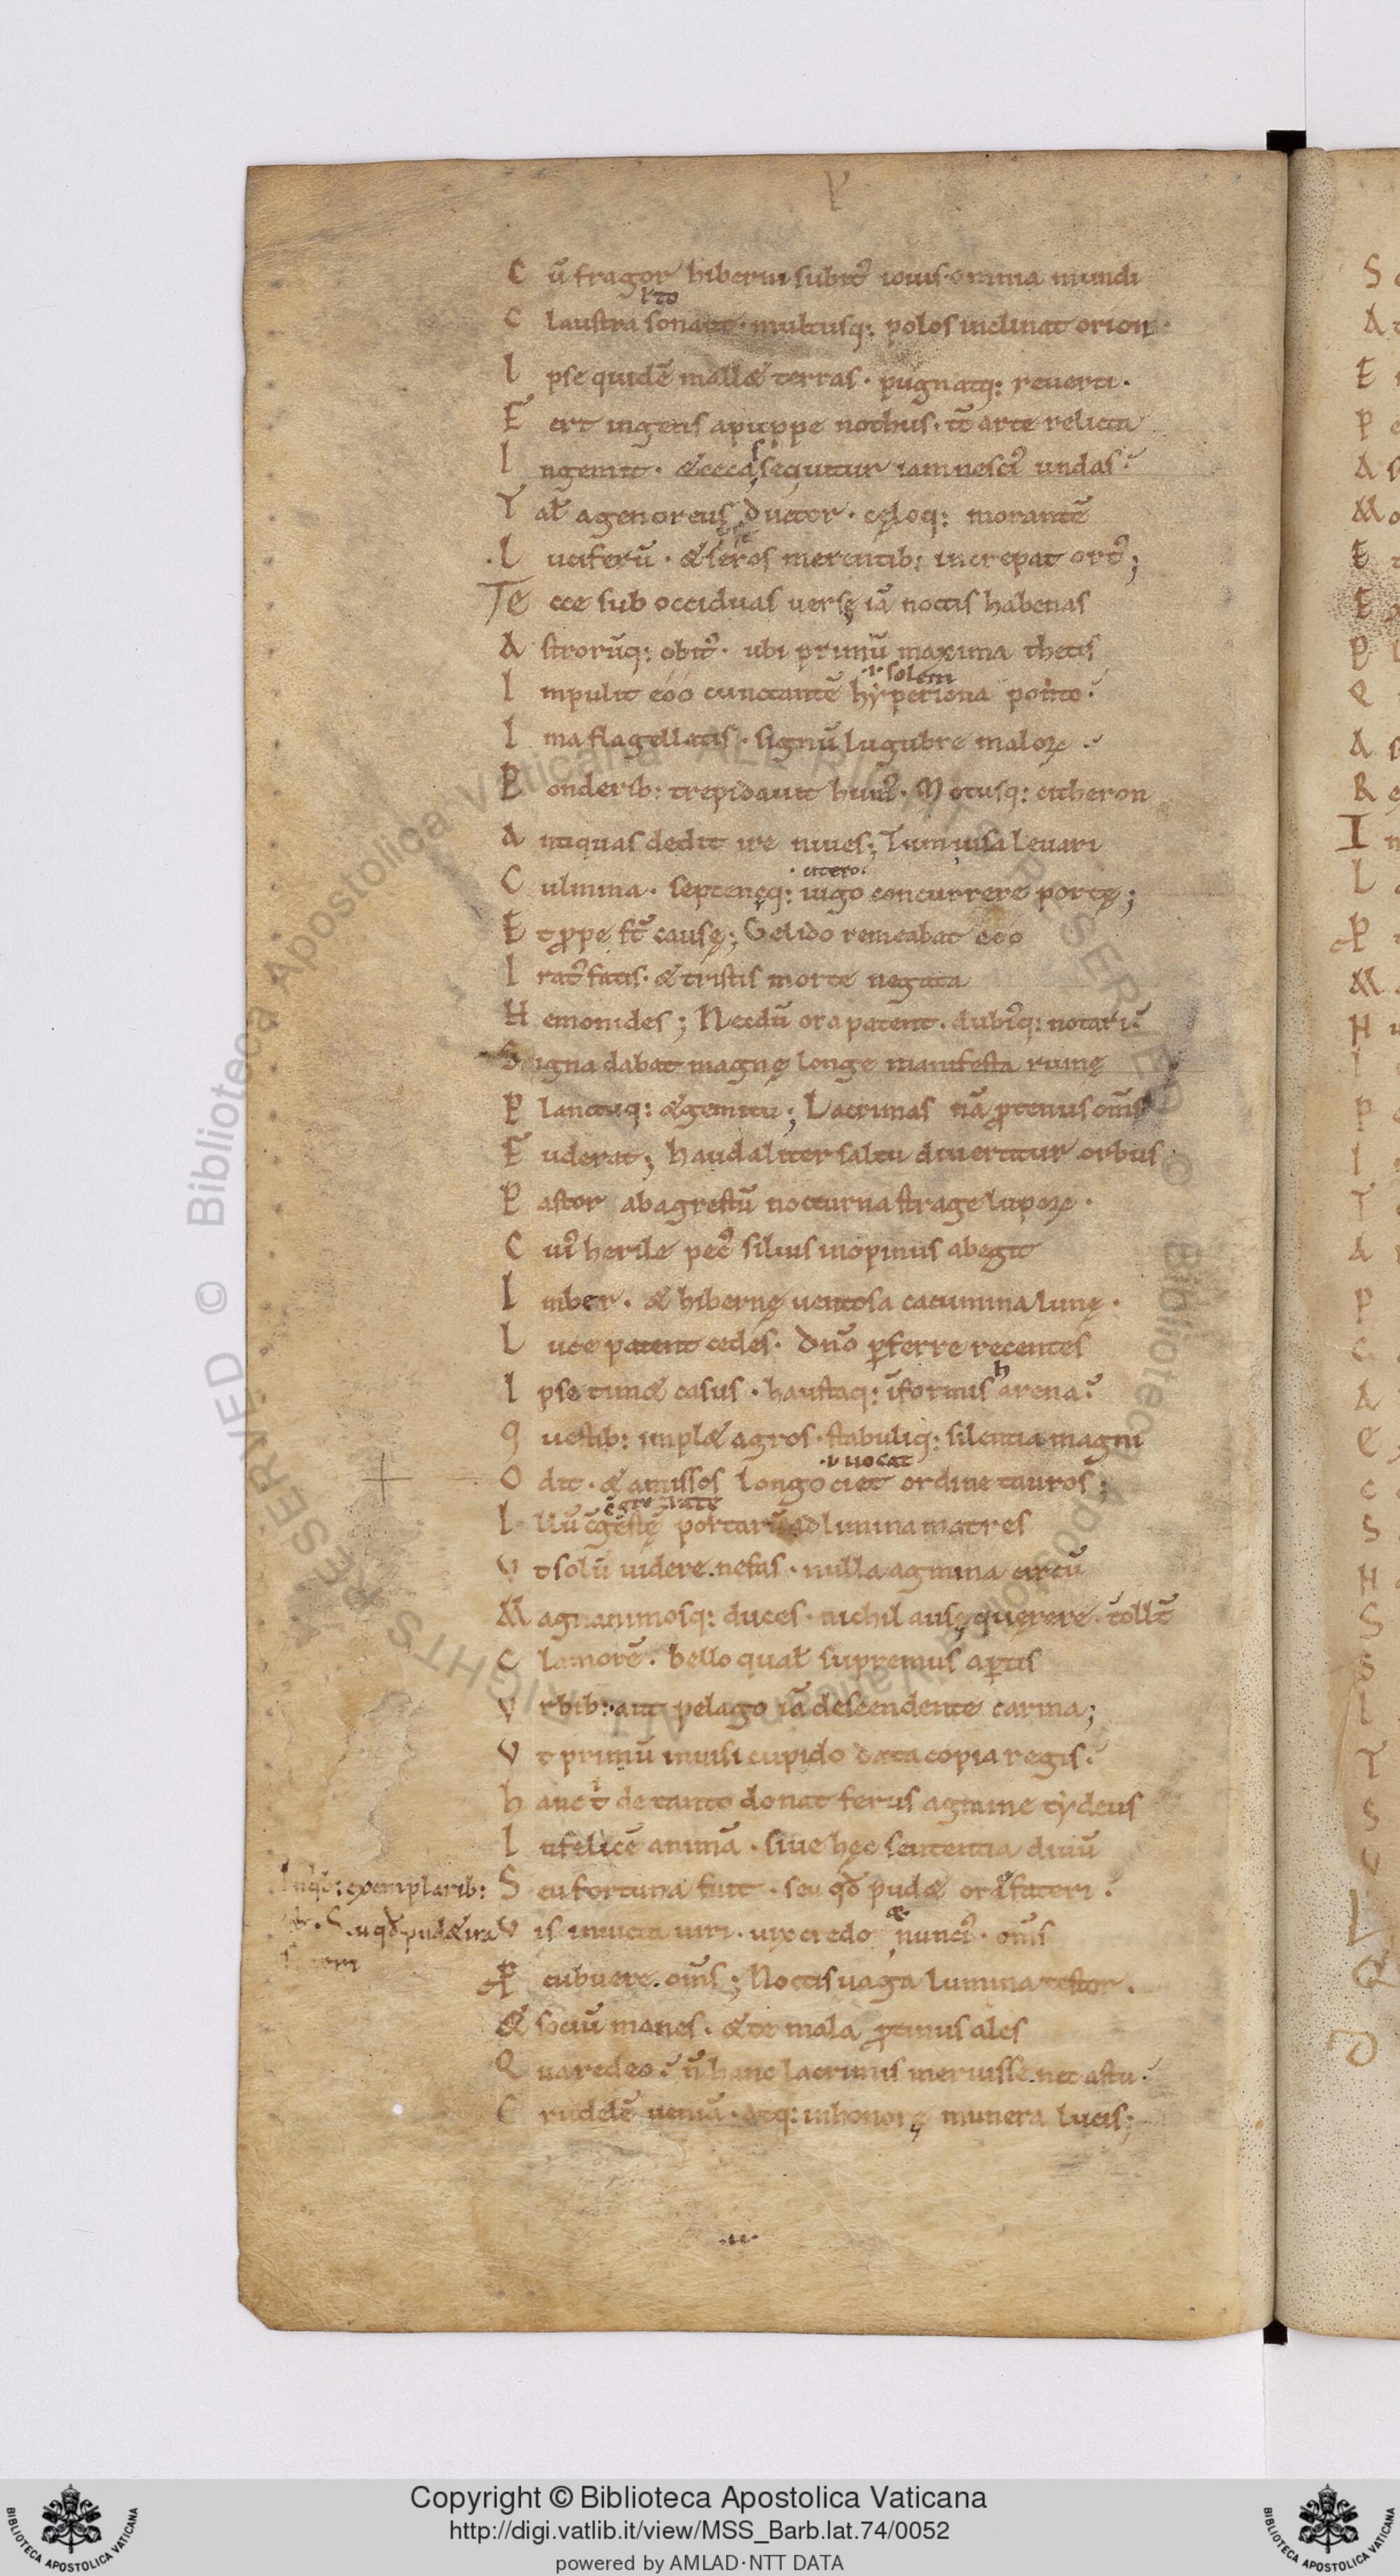 C ū fragor hiberni subit᷒ iouis · omnia mundi
C laustra sonant · multusq: polos inclinat orion ·
I pse quidē mallet terras · pugnatq: reuerti ·
F ert ingens apuppe nothus · tc̄ arte relicta
I ngemit · & ceca sequitur iam nesci᷒ undas ·
T al̄ agenoreus ductor · cęloq: morantē
L uciferū · & seros merentib; increpat ort᷒;
E cce sub occiduas uersę iā noctis habenas
A strorūq: obit᷒ · ubi primū maxima thetis
·i· solem
I mpulit eoo cunctantē hyperiona ponto ·
I ma flagellatis · signū lugubre maloꝝ ·
P onderib: trepidauit hum᷒ · Motusq: citheron
A ntiquas dedit ire niues; Tum uisa leuari
citero
C ulmina · septenęq: iugo concurrere portę;
E t ꝓpe st̄ causę; Gelido remeabat eoo
I rat᷒ fatis · & tristis morte negata
H emonides; Necdū ora patent · dubi᷒q: notari ·
S igna dabat magnę longe manifesta ruinę
P lanctuq: & gemitu; Lacrimas nā ꝓtenus om̄s
F uderat; haud aliter saltu diuertitur orbus
P astor ab agrestū nocturna strage lupoꝝ ·
C ui᷒ herile pec᷒ siluis inopinus abegit
I mber · & hibernę uentosa cacumina lunę ·
L uce patent cedes · Dn̄o ꝑferre recentes
h
I pse timet casus · haustaq: īformis arena ·
Q uestib: implet agros · stabuliq: silentia magni
·i· uocat
O dit · & amissos longo ciet ordine tauros;
I llū c̄gestę portarū ad limina matres
V t solū uidere · nefas · nulla agmina circū
M agnanimosq: duces · nichil ausę quęrere · tollt̄
C lamorē · bello qual̄ supremus aꝑtis
V rbib: · aut pelago iā descendente carina;
V t primū inuisi cupido data copia regis ·
h anc t̄ de tanto donat ferus agmine tydeus
I nfelicē animā · siue hęc sententia diuū
S eu fortuna fuit · seu qd̄ pudet ora fateri ·
exemplarib:
S. u qd̄ pudet ira
V is inuicta uiri · uix credo & nunci᷒ · om̄s
P cubuere · om̄s; Noctis uaga lumina testor ·
& sociū manes · & te mala ꝓtinus ales
Q ua redeo · n̄ hanc lacrimis meruisse · nec astu ·
C rudelē ueniā · atq: inhonorę munera lucis;
Copyright © Biblioteca Apostolica Vaticana
http://digi.vatlib.it/view/MSS_Barb.lat.74/0052
powered by AMLAD·NTT DATA